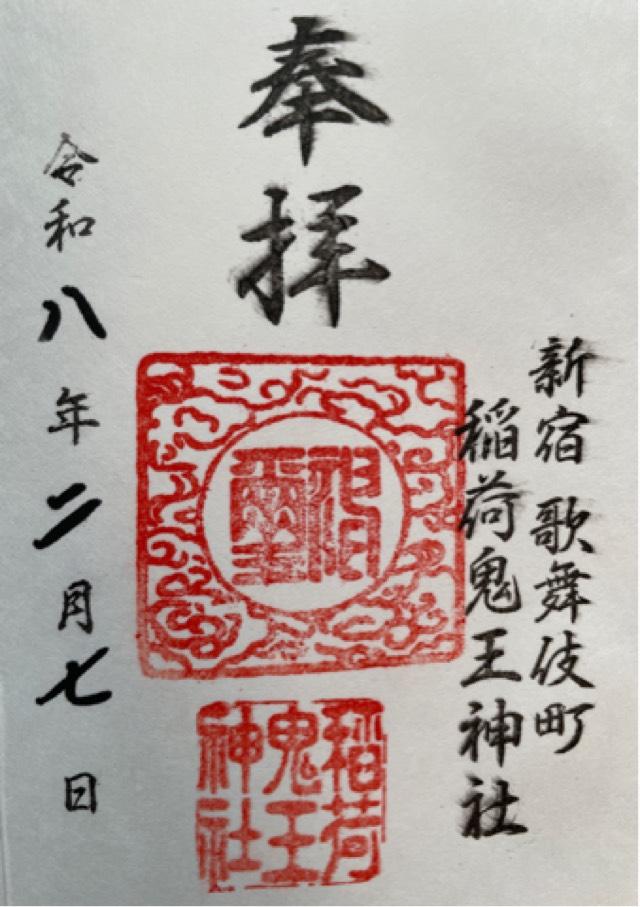 奉拝
新宿 歌舞伎町
稲荷鬼王神社
令和八年二月七日
稲荷
鬼王
神社